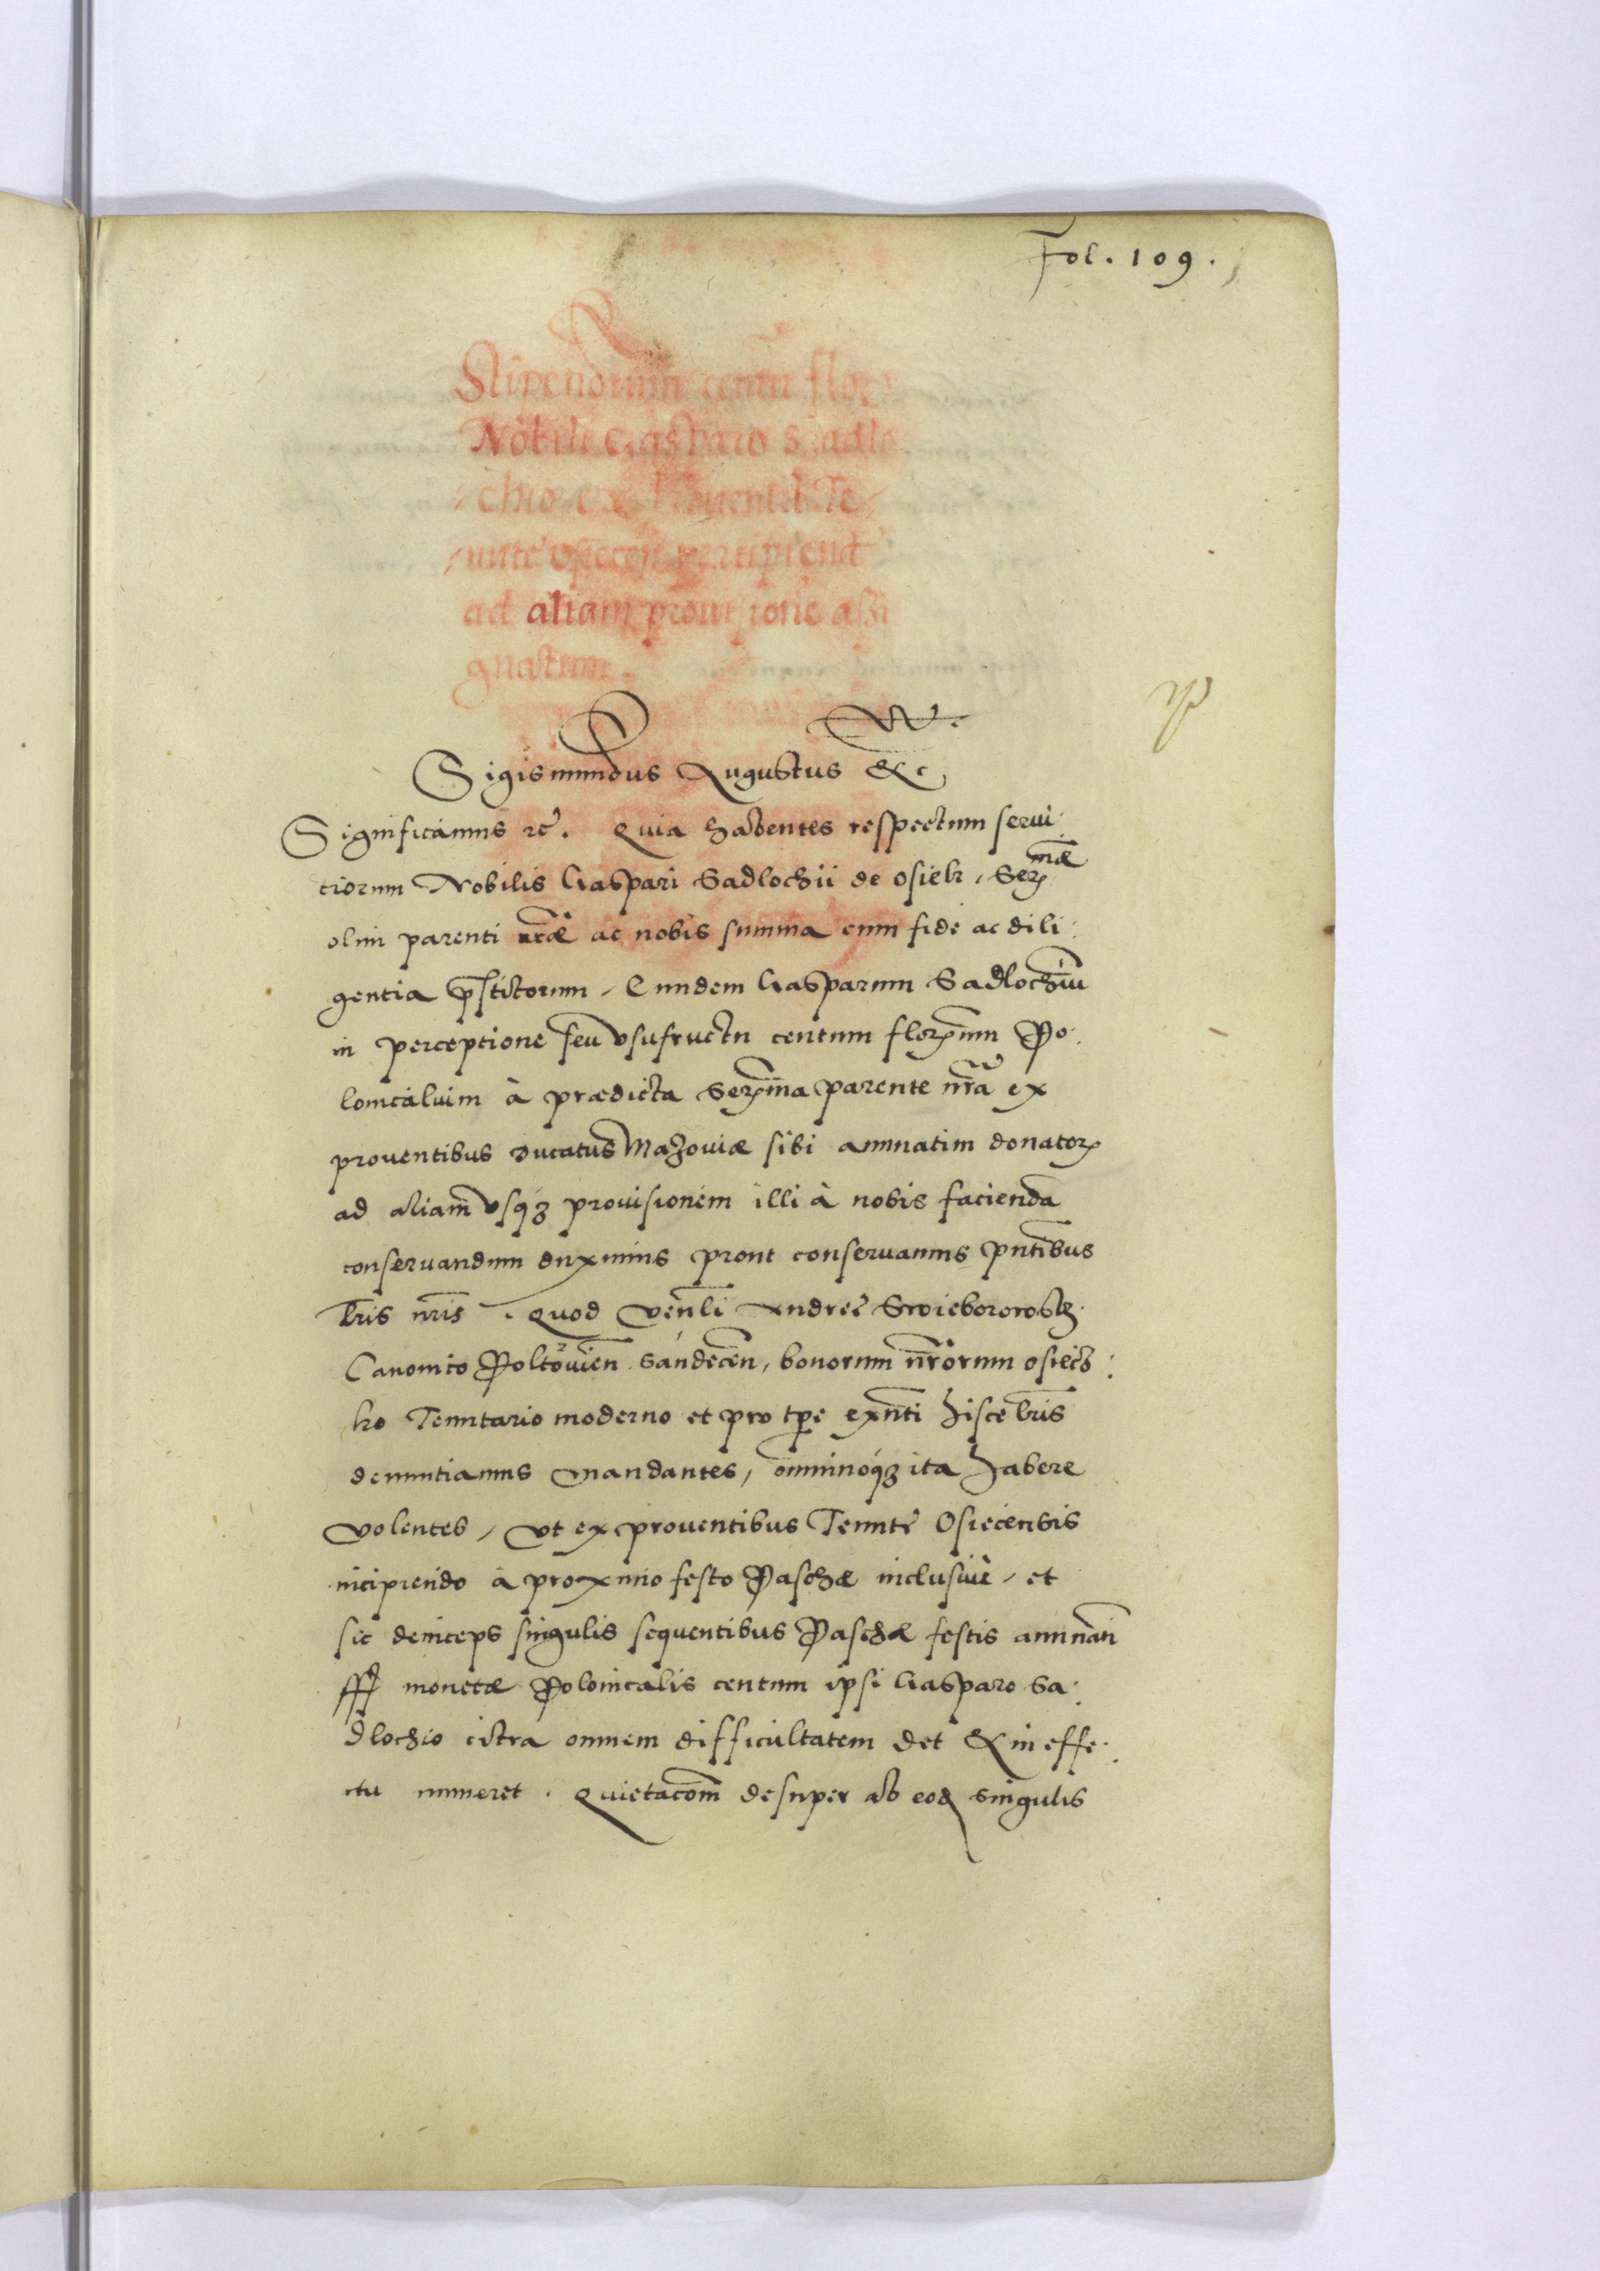 Fol. 109.
Stipendium centu flor
Nobili Gasparo Sadlo
chio ex prouentib Te
nute osiecen percipiend
ad aliam prouisione assi
gnatum.
Sigismundus Augustus &c
Significamus rc. Quia habentes respectum serui
tiorum Nobilis Gaspari Sadlochii de Osiek, Sermae
olim parenti nrae ac nobis summa cum fide ac dili
gentia prstitorum, Eundem Gasparum Sadlochium
in perceptione seu vsufructu centum florenum Po
lonicalium à praedicta Serma parente nra ex
prouentibus Ducatus Mazouiae sibi annuatim donator
ad aliam vsq3 prouisionem illi à nobis facienda
conseruandum duximus prout conseruamus pntibus
lris nris. Quod Venli Andree Swieborowsk
Canonico Poltouien Sandecen, bonorum nrorum osiecz
ko Tenutario moderno et pro tpe exnti hisce lris
denuntiamus mandantes, omninoq3 ita habere
volentes, vt ex prouentibus Tenute Osiecensis
incipiendo à proximo festo Paschae inclusiuè, et
sic deinceps singulis sequentibus Paschae festis annuati
ff monetae Polonicalis centum ipsi Gasparo Sa
dlochio citra omnem difficultatem det & in effe
ctu numeret. Quietacom desuper ab eod singulis